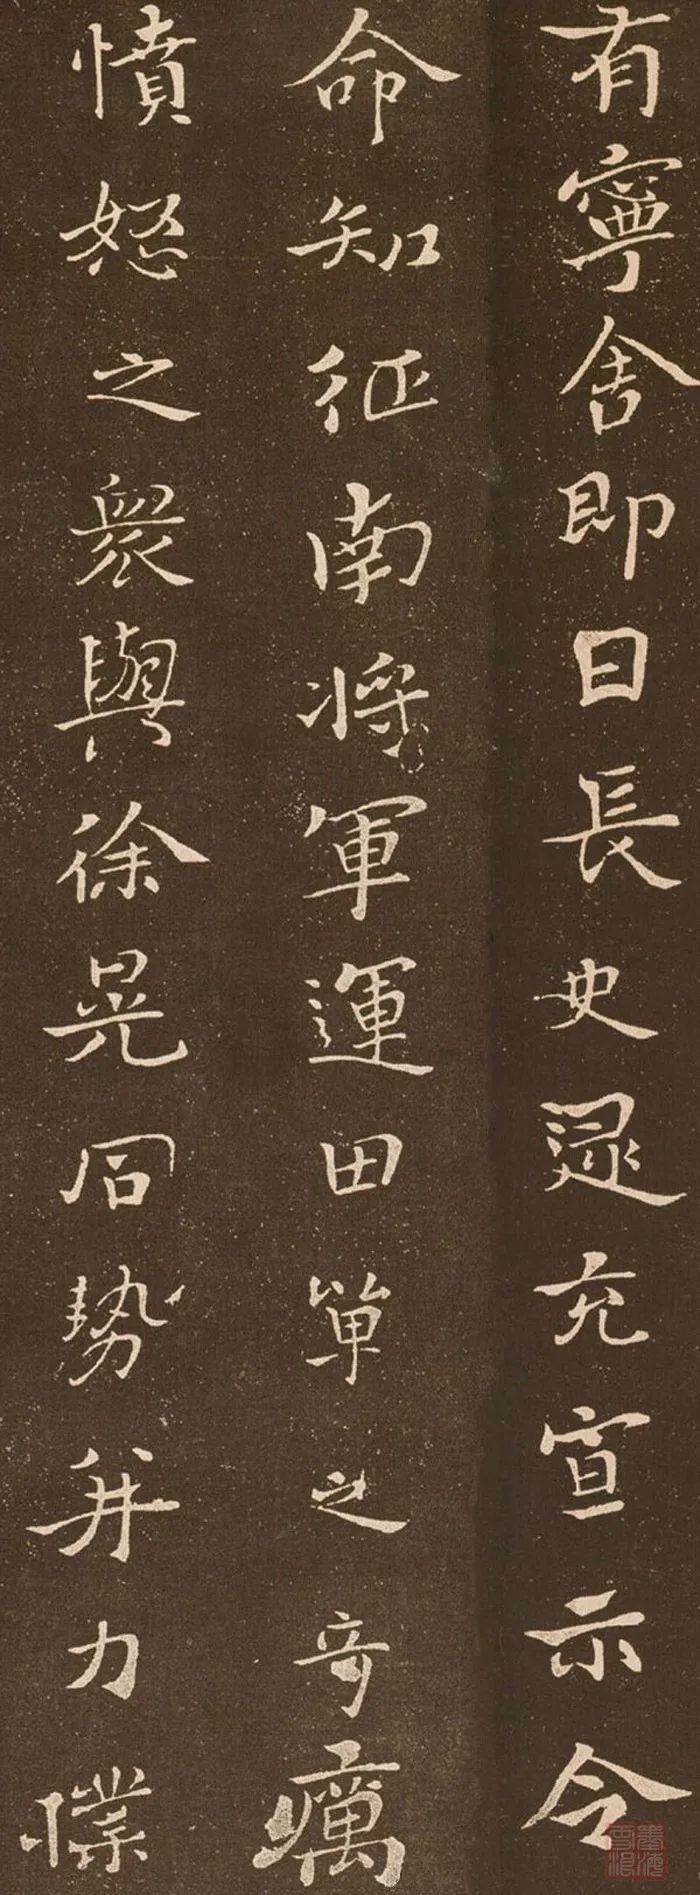 有寧舍即日長史逯充宣示令
命知征南將軍運田單之奇厲
憤怒之眾與徐晃同勢并力撲